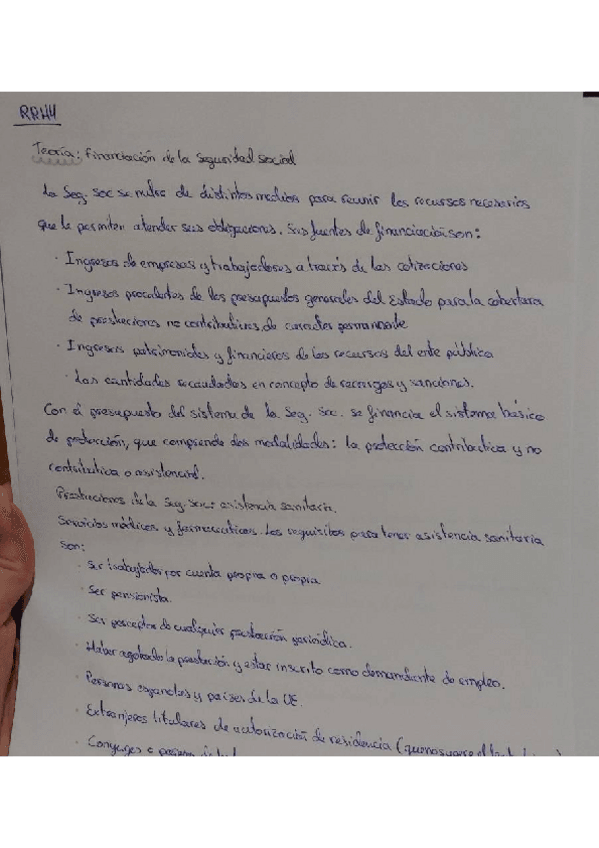 RRHH
Teoría: Financiación de la Seguridad Social
La Seg. Soc se nutre de distintos medios para reunir los recursos necesarios
que le permiten atender sus obligaciones. Sus fuentes de financiación son:
· Ingresos de empresas y trabajadores a través de las cotizaciones
· Ingresos procedentes de los presupuestos generales del Estado para la cobertura
de prestaciones no contributivas de caracter permanente
· Ingresos patrimoniales y financieros de los recursos del ente pública
· Las cantidades recaudadas en concepto de recargos y sanciones.
Con el presupuesto del sistema de la Seg. Soc. se financia el sistema básico
de protección, que comprende dos modalidades: la protección contributiva y no
contributiva o asistencial.
Prestaciones de la Seg. Soc: asistencia sanitaria.
Servicios médicos y farmaceuticos. Los requisitos para tener asistencia sanitaria
son:
· Ser trabajador por cuenta propia o propia
· Ser pensionista.
· Ser perceptor de cualquier prestación periódica.
· Haber agotado la prestación y estar inscrito como demandante de empleo.
· Personas españolas y paises de la UE.
· Extranjeros titulares de autorización de residencia (que no supere el
· Conyuges o